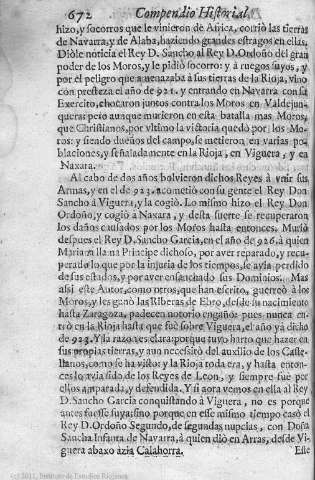 672 Compendio Historial
hizo, y socorros que le vinieron de Africa, corriò las tierras
de Navarra, y de Alaba, haziendo grandes estragos en ellas.
Diòle noticia el Rey D. Sancho al Rey D. Ordoño del gran
poder de los Moros, y le pidiò socorro y à ruegos suyos, y
por el peligro que amenazaba à sus tierras de la Rioja, vino
con presteza el año de 921. y entrando en Navarra con su
Exercito, chocaron juntos contra los Moros en Valdejun-
quera: pero aunque murieron en esta batalla mas Moros,
que Christianos, por vltimo la victoria quedò por los Mo-
ros: y siendo dueños del campo, se metieron en varias po-
blaciones, y señaladamente en la Rioja, en Viguera, y en
Naxara.
Al cabo de dos años bolvieron dichos Reyes à vnir sus
Armas, y en el de 923. acometiò con su gente el Rey Don
Sancho à Viguera, y la cogiò. Lo mismo hizo el Rey Don
Ordoño, y cogiò à Naxara, y desta suerte se recuperaron
los daños causados por los Moros hasta entonces. Muriò
despues el Rey D. Sancho Garcia, en el año de 926. à quien
Mariana llama Principe dichoso, por aver reparado, y recu-
perado lo que por la injuria de los tiempos, le avia perdido
de sus estados, y por aver ensanchado sus Dominios. Mas
assi este Autor, como otros, que han escrito, guerreò à los
Moros, y les ganò las Riberas de Ebro, desde su nacimiento
hasta Zaragoza, padecen notorio engaño: pues nunca en-
trò en la Rioja hasta que fuè sobre Viguera, el año yà dicho
de 923. Y la razon es clara: porque tuvo harto que hazer en
sus propias tierras, y aun necessitò del auxilio de los Caste-
llanos, como se ha visto: y la Rioja toda era, y hasta enton-
ces lo avia sido de los Reyes de Leon, y siempre fuè por
ellos amparada, y defendida. Y si aora vemos en ella al Rey
D. Sancho Garcia conquistando à Viguera, no es porque
antes fuesse suya; sino porque en esse mismo tiempo casò el
Rey D. Ordoño Segundo, de segundas nupcias, con Doña
Sancha Infanta de Navarra, à quien diò en Arras, desde Vi-
guera abaxo àzia Calahorra. Este
(c) 2011, Instituto de Estudios Riojanos